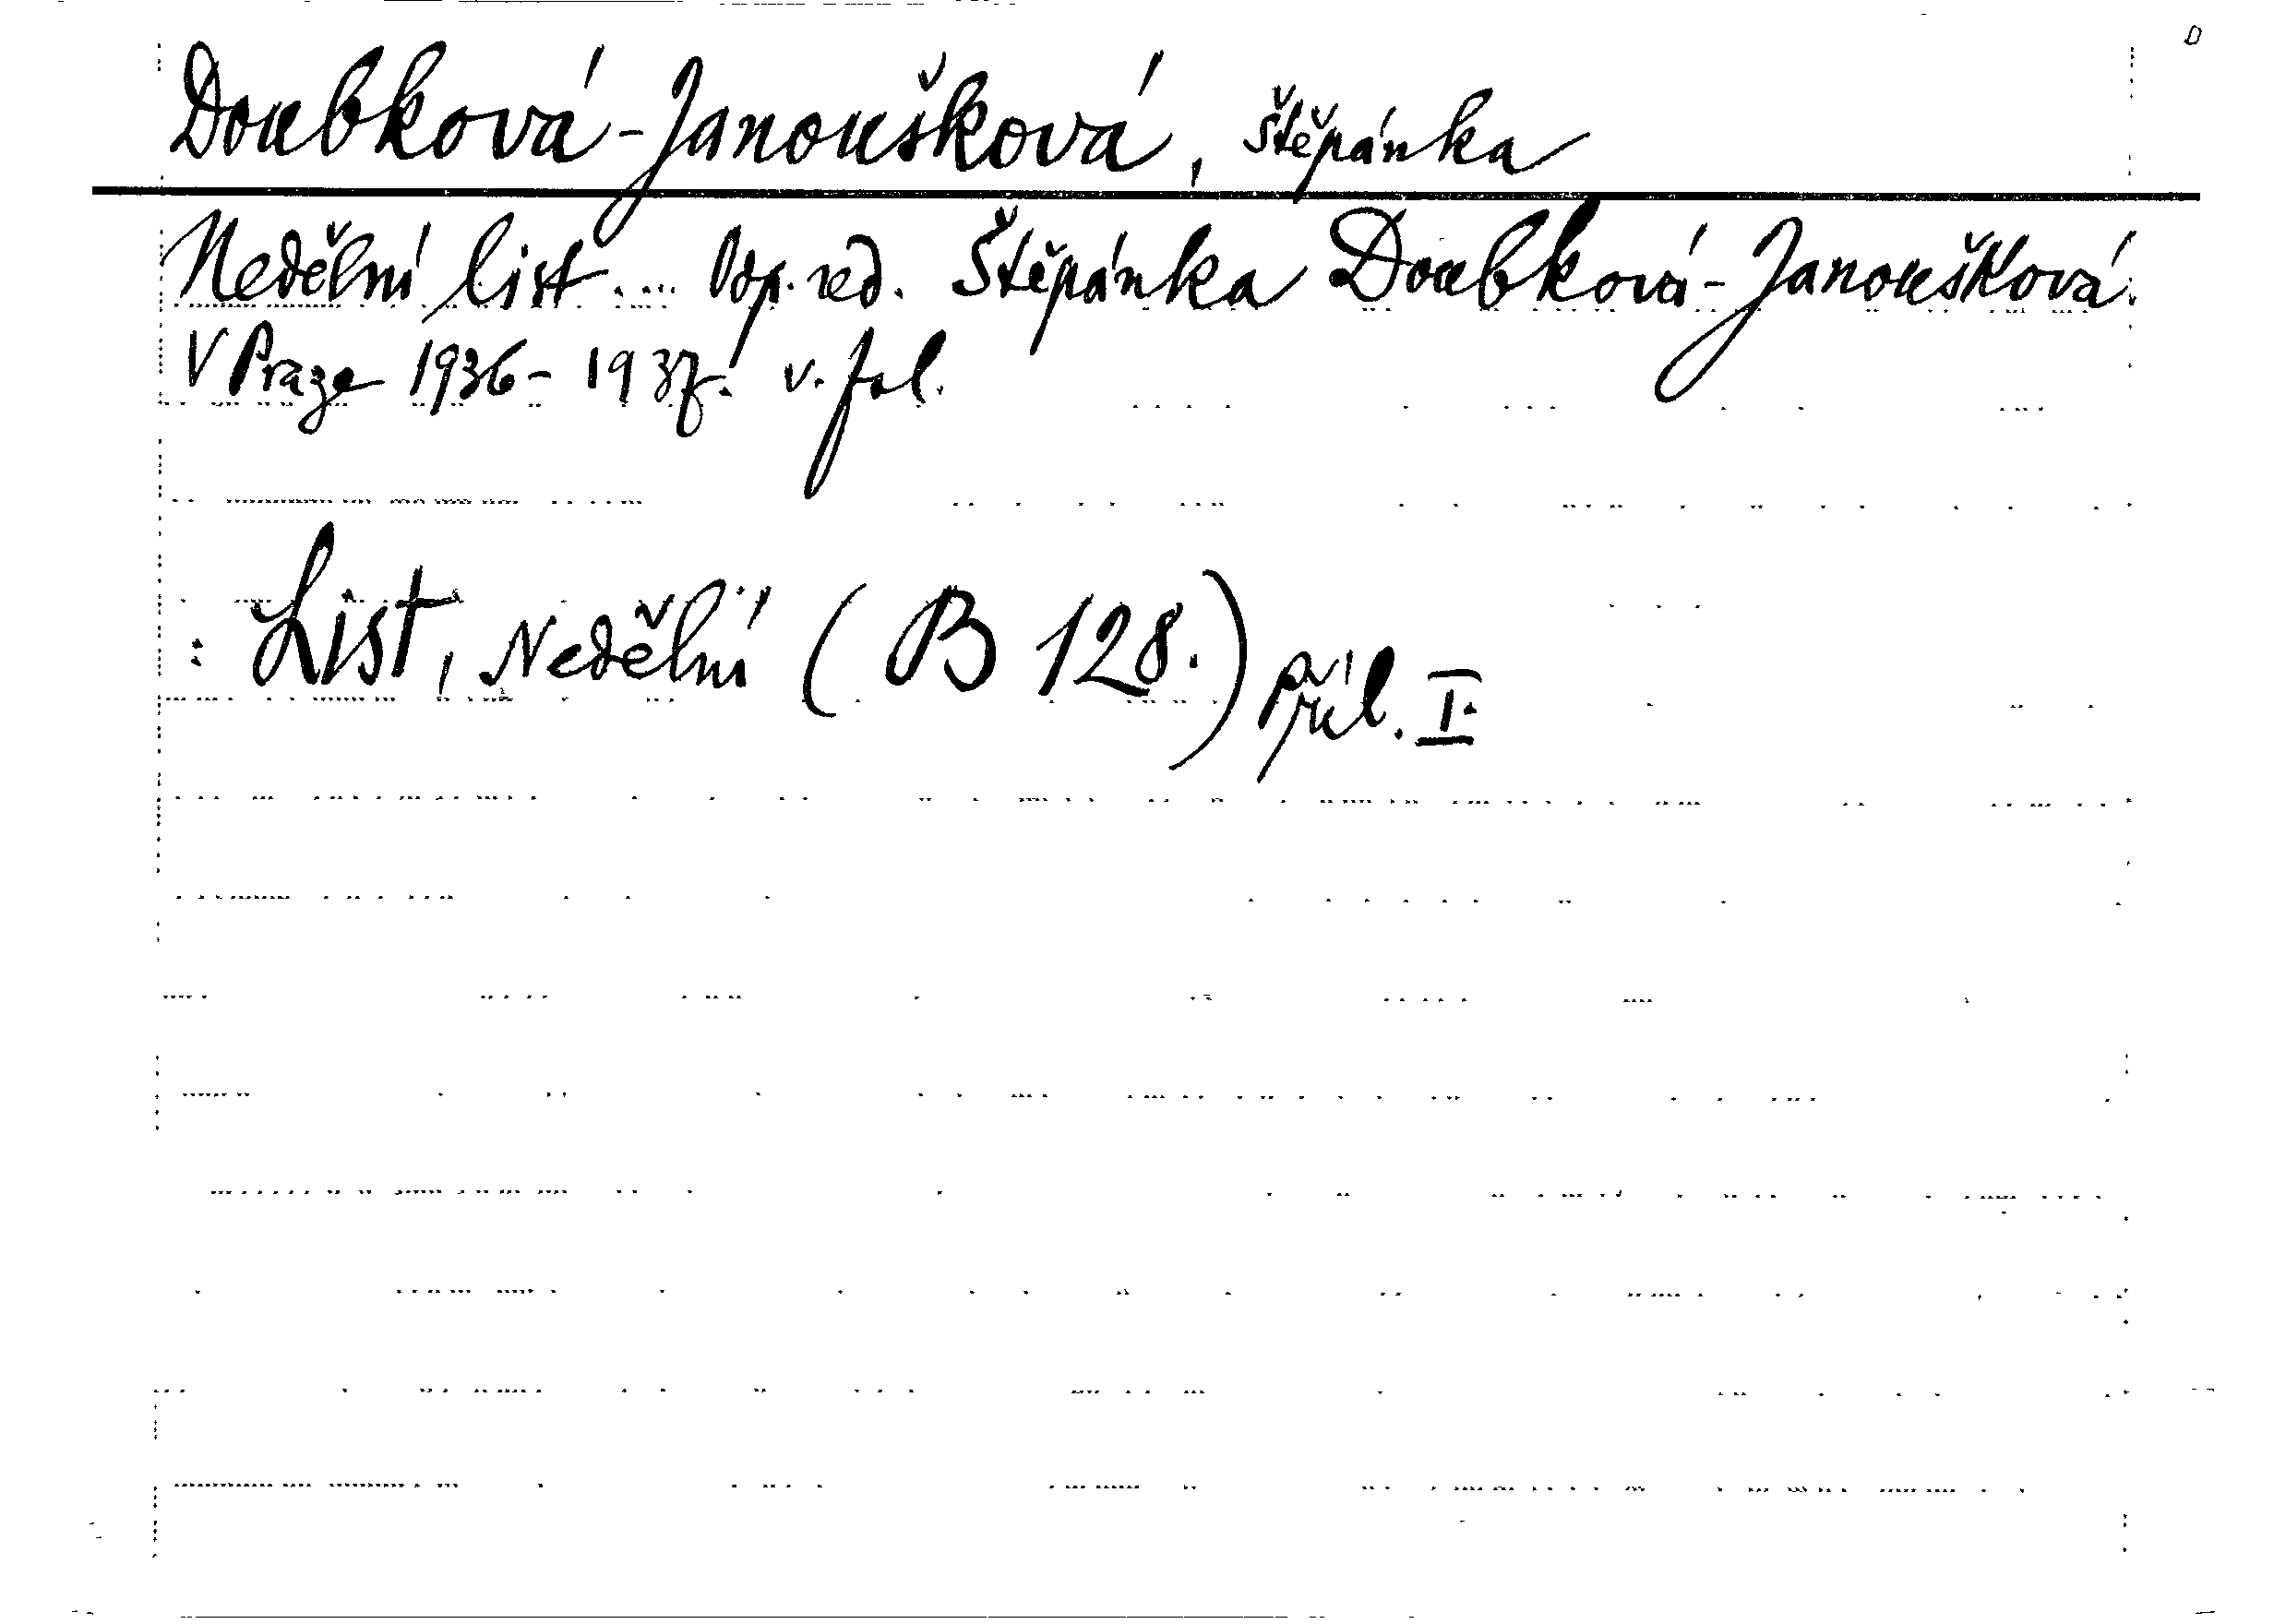 Doubková-Janoušková, Štěpánka
Nedělní list .... Odp. red. Štěpánka Doubková-Janoušková.
V Praze 1936-1937. v. fol.
: List, Nedělní (B 128.) příl. I.